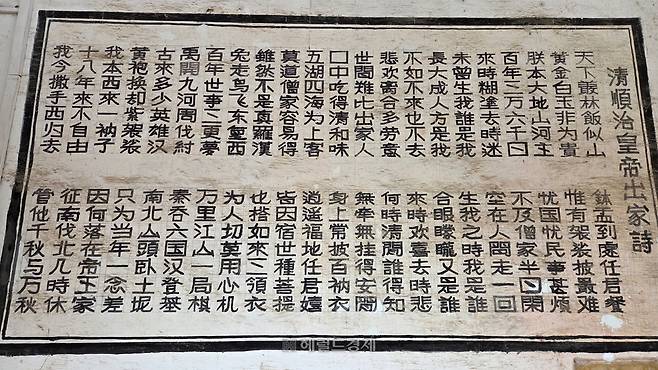 清順治皇帝出家詩
天下叢林飯似山
鉢盂到處任君餐
黄金白玉非为貴
惟有袈裟披最难
朕本大地山河主
忧国忧民事甚煩
百年三万六千日
不及僧家半日閑
來時糊塗去時迷
空在人間走一回
未曾生我誰是我
生我之時我是誰
長大成人方是我
合眼曚曨又是誰
不如不來也不去
來時欢喜去時悲
悲欢离合多劳意
何時清閒誰得知
世間难比出家人
無牵無挂得安閒
口中吃得清和味
身上常披百衲衣
五湖四海为上客
逍遥福地任君嬉
莫道僧家容易得
皆因宿世種菩提
雖然不是真羅漢
也搭如來三领衣
兔走鸟飞东复西
为人切莫用心机
百年世事三更夢
万里江山一局棋
禹開九河周伐紂
秦吞六国汉登基
古來多少英雄汉
南北山頭卧土坭
黄袍换却紫袈裟
只为当年一念差
我本西來一衲子
因何落在帝王家
十八年來不自由
征南伐北几時休
我今撒手西归去
管他千秋与万秋
헤럴드경제